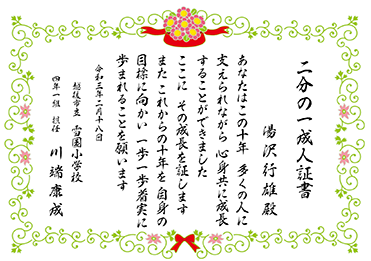 二分の一成人証書
湯沢行雄殿
あなたはこの十年 多くの人に
支えられながら 心身共に成長
することができました
ここに その成長を証します
また これからの十年を 自身の
目標に向かい 一歩一歩着実に
歩まれることを願います
令和三年二月十八日
越後市立 雪国小学校
四年一組 担任 川端康成